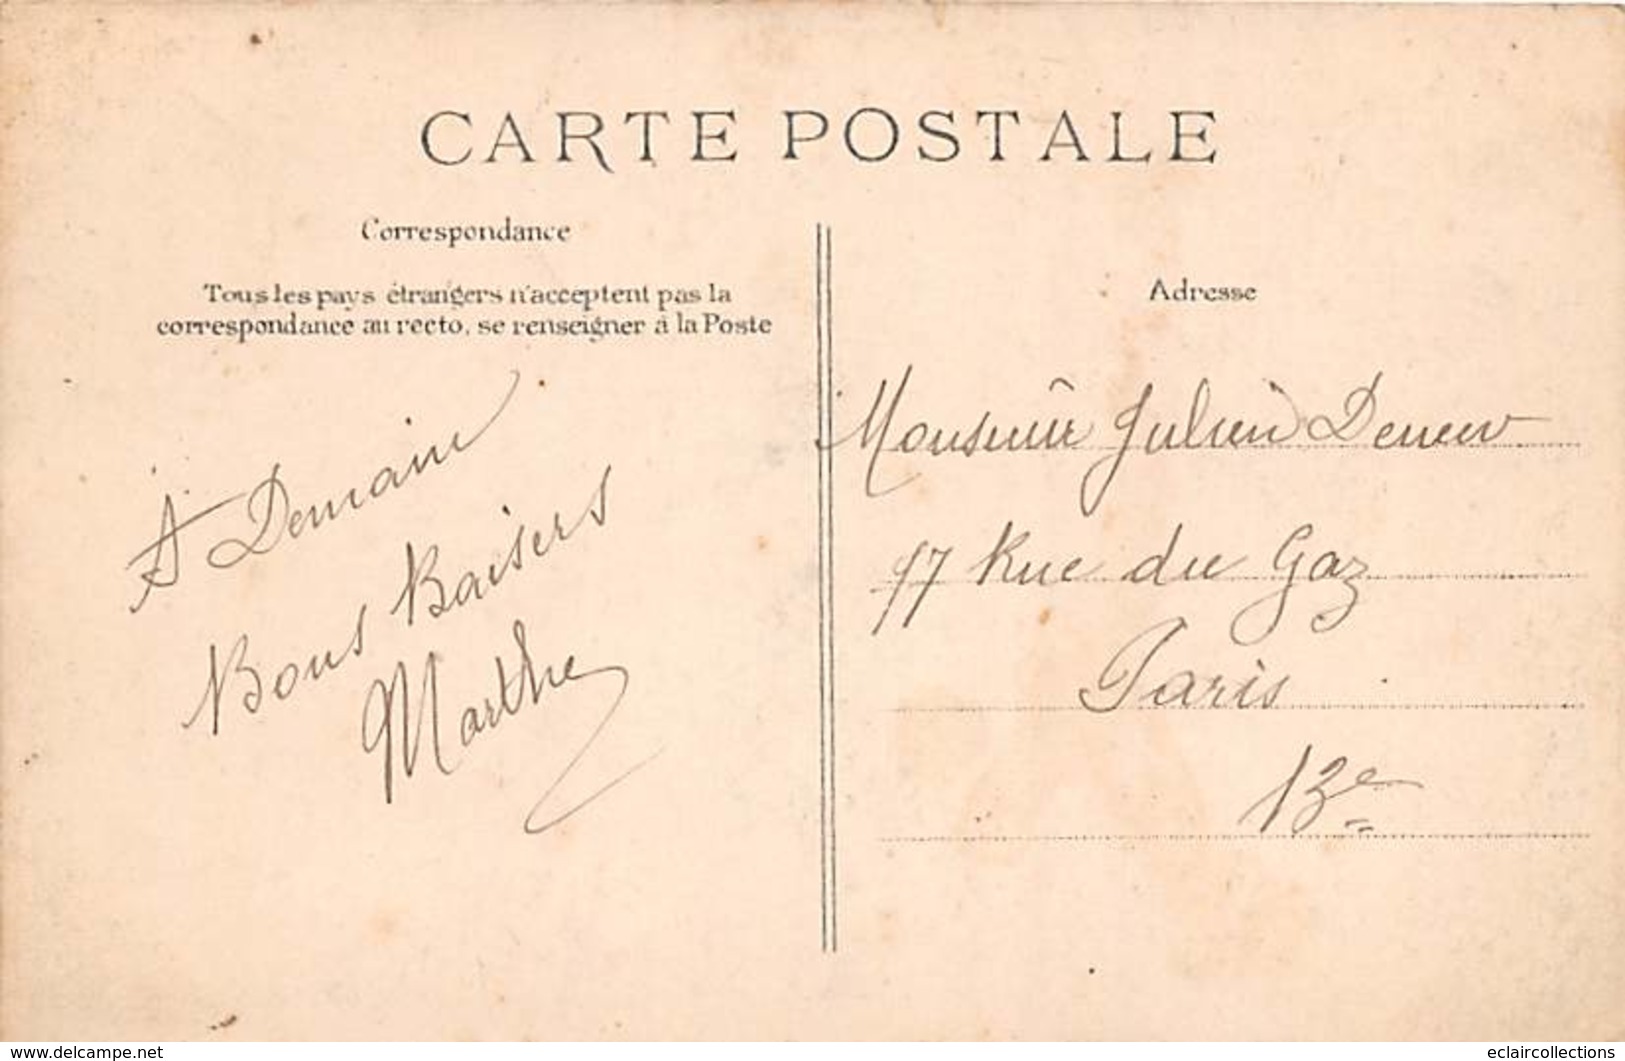 CARTE POSTALE
Correspondance
Tous les pays étrangers n'acceptent pas la
correspondance au recto, se renseigner à la Poste
A Demain
Bons Baisers
Marthe
Adresse
Monsieur Julien
17 Rue du Gaz
Paris
13e
www.delcampe.net
eclaircollections